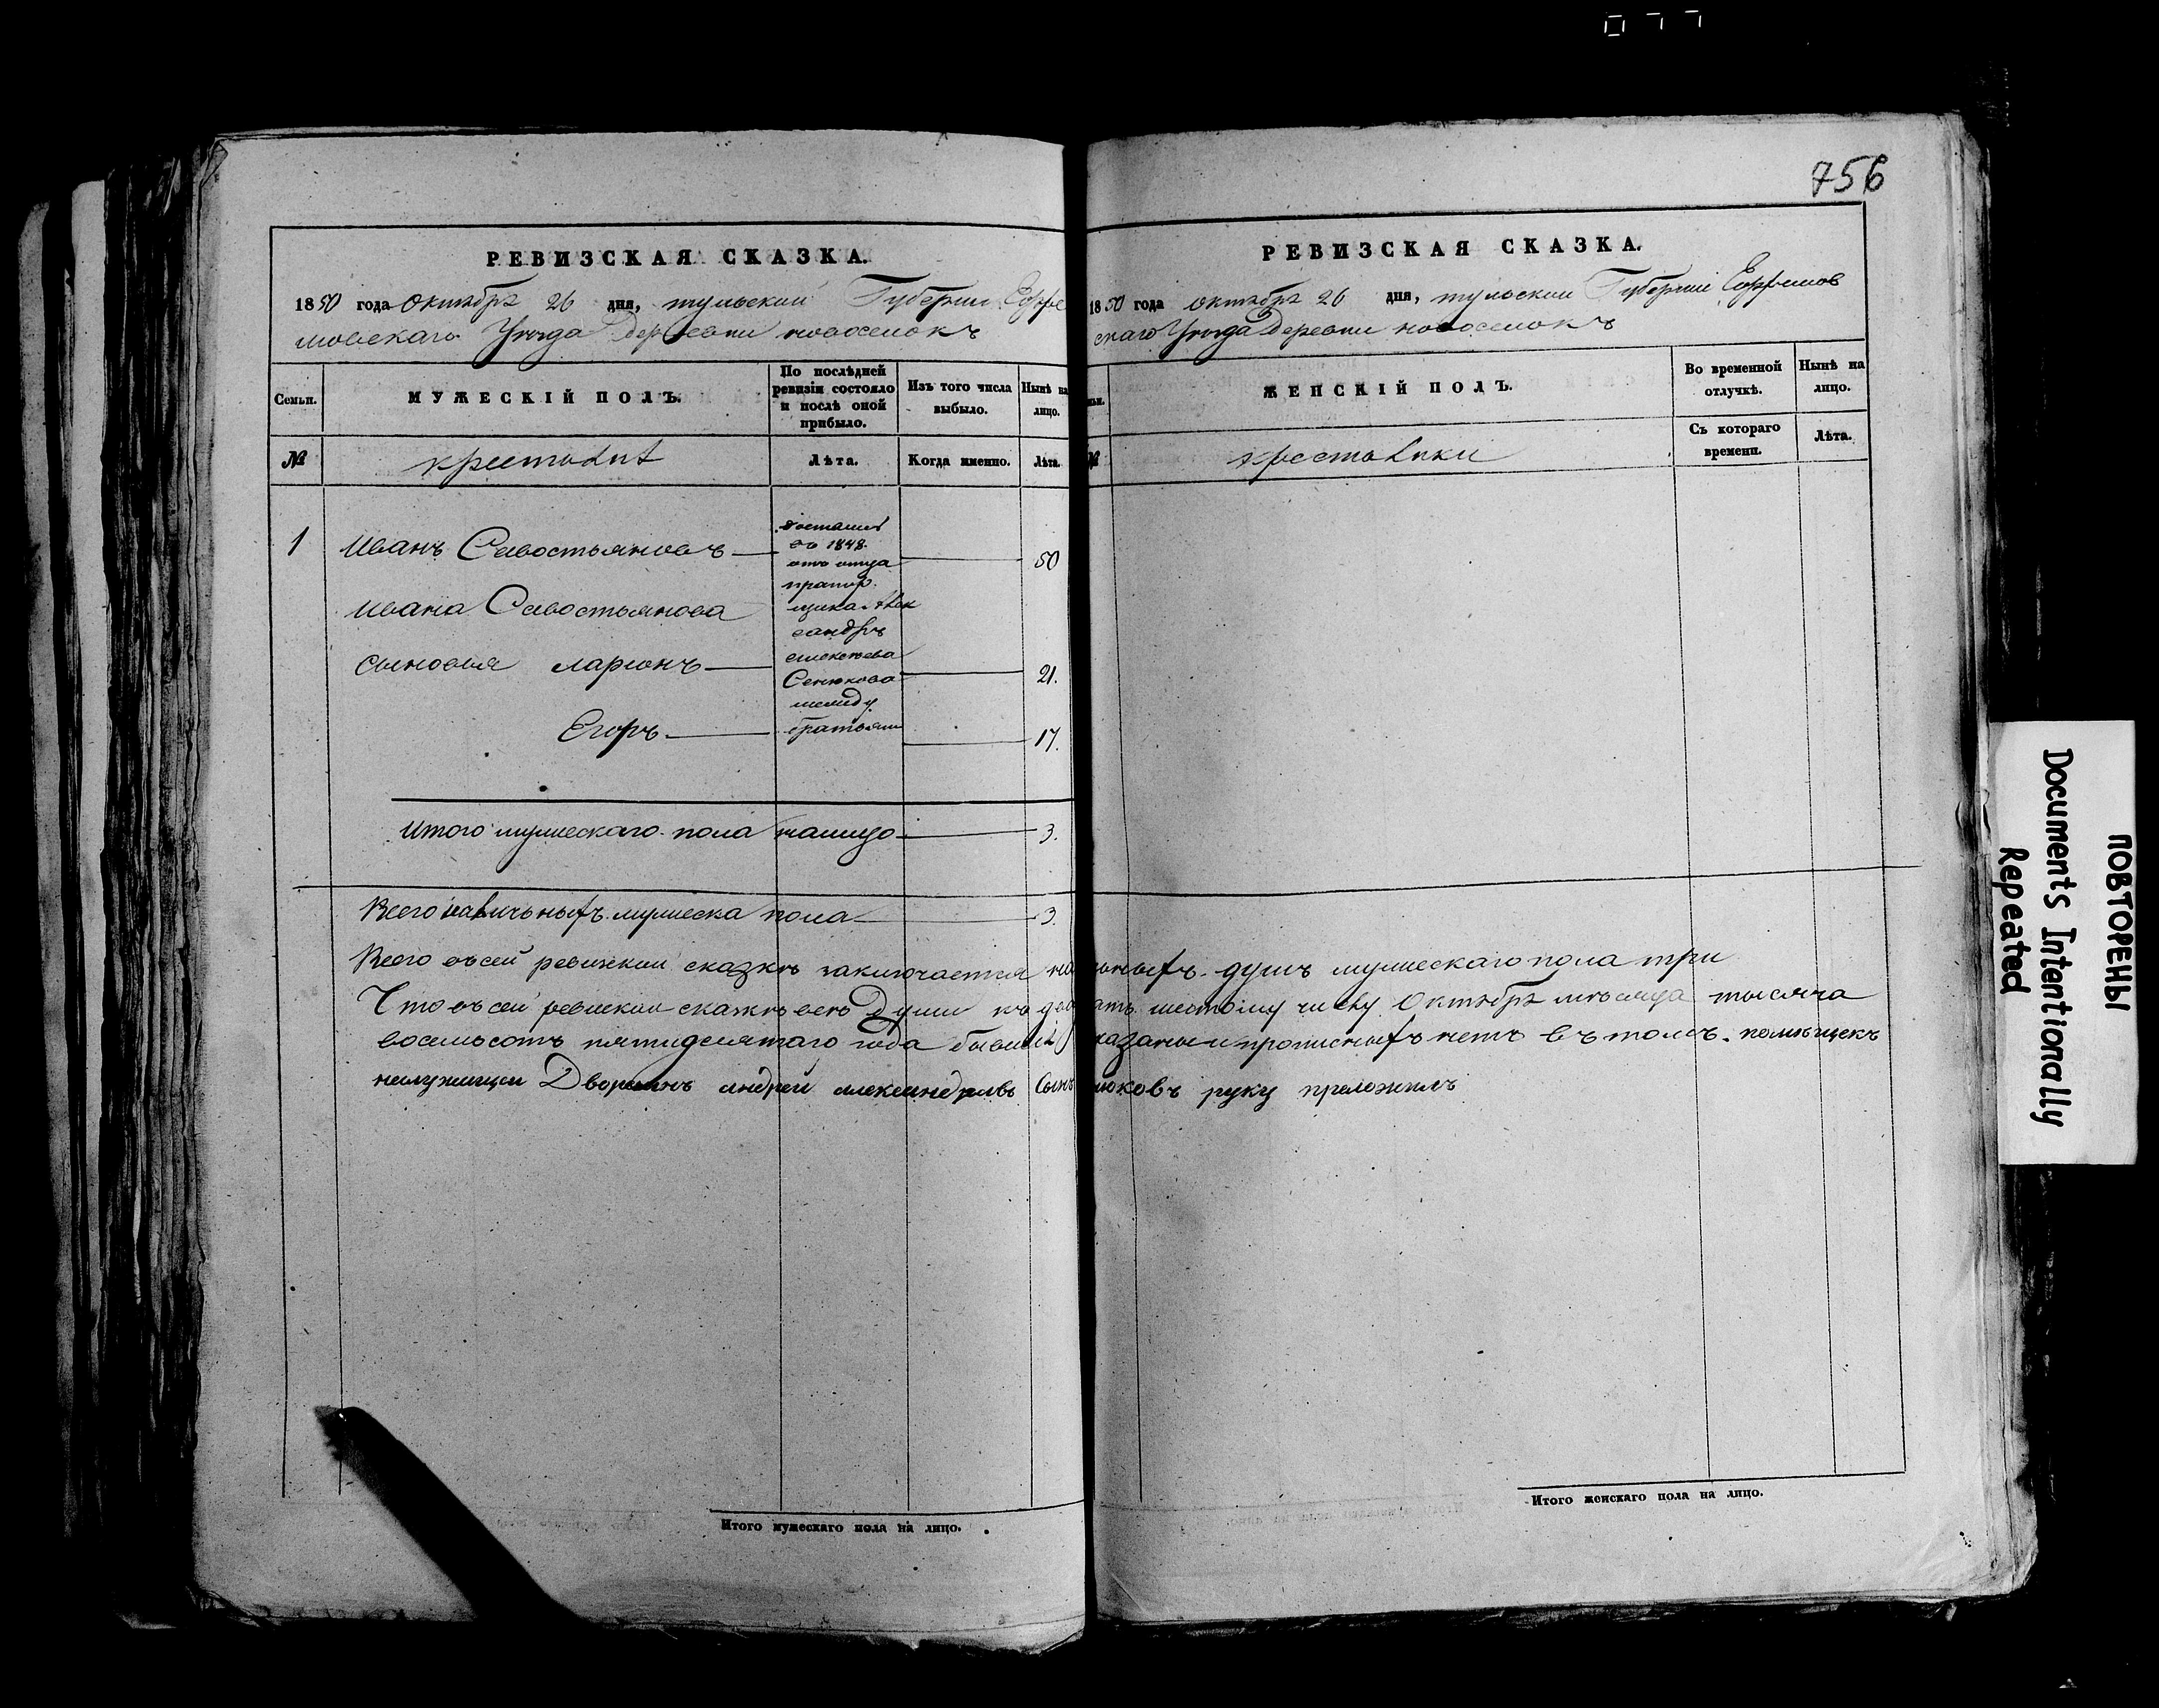 077
756
РЕВИЗСКАЯ СКАЗКА.
1850 года октября 26 дня, тульской Губернии Ефре
мовскаго Уезда Деревни новоселокъ
Семьи.
МУЖЕСКІЙ ПОЛЪ.
По послѣдней ревизіи состояло и послѣ оной прибыло.
Изъ того числа выбыло.
Нынѣ на лицо.
№
Лѣта.
Когда именно.
Лѣта.
1
Иванъ Савостьяновъ
50
достался
въ 1848.
отъ отца
прапор
щика Алек
сандръ
Сенюкова
между
братьями
Ивана Савостьянова
сыновья ларионъ
21.
Егоръ
17.
Итого мужескаго пола налицо
3.
Всего наличныхъ мужеска пола
3.
РЕВИЗСКАЯ СКАЗКА.
1850 года октября 26 дня, тульской Губерніи Ефремов
скаго Уезда Деревни новоселокъ
ЖЕНСКІЙ ПОЛЪ.
Во временной отлучкѣ.
Нынѣ на лицо.
№
Съ котораго времени.
Лѣта.
Всего въ сей ревизкои сказкѣ заключается душъ мужескаго пола три
Что въ сей ревискои скаскѣ всѣ Души къ шестому числу Октября месяца тысяча
восемьсотъ пятидесятаго года прописныхъ нетъ въ томъ помещекъ
Дворянинъ андрей александровъ Сынъ руку преложилъ
Итого мужескаго пола на лицо.
Итого женскаго пола на лицо.
ПОВТОРЕНЫ
Documents Intentionally
Repeated